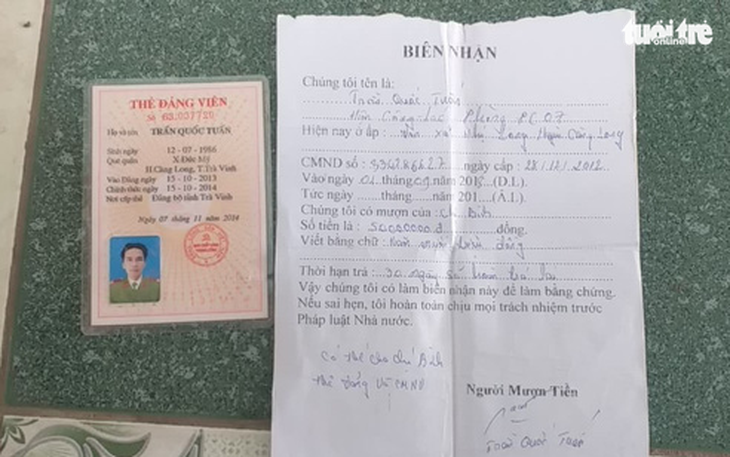 tuổi trẻ
online
THẺ ĐẢNG VIÊN
Số 63.037720
Họ và tên TRẦN QUỐC TUẤN
Sinh ngày 12 - 07 - 1986
Quê quán X.Đức Mỹ
H.Càng Long, T.Trà Vinh
Vào Đảng ngày 15 - 10 - 2013
Chính thức ngày 15 - 10 - 2014
Nơi cấp thẻ Đảng bộ tỉnh Trà Vinh
Ngày 07 tháng 11 năm 2014
BIÊN NHẬN
Chúng tôi tên là:
Trần Quốc Tuấn
Công tác Phòng PC07
Hiện nay ở ấp : Long Huyện Càng Long
CMND số : 334286627 ngày cấp : 28/12/2012
Vào ngày 01 tháng 09 năm 2018 (D.L).
Tức ngày tháng năm 201 (Â.L).
Chúng tôi có mượn của: Bình
Số tiền là : 50.000.000 đ đồng.
Viết bằng chữ: Năm mươi triệu đồng
Thời hạn trả : 30 ngày sẽ hoàn trả lại
Vậy chúng tôi có làm biên nhận này để làm bằng chứng.
Nếu sai hẹn, tôi hoàn toàn chịu mọi trách nhiệm trước
Pháp luật Nhà nước.
Có thế cho chú Bình
thẻ Đảng và CMND
Người Mượn Tiền
Trần Quốc Tuấn